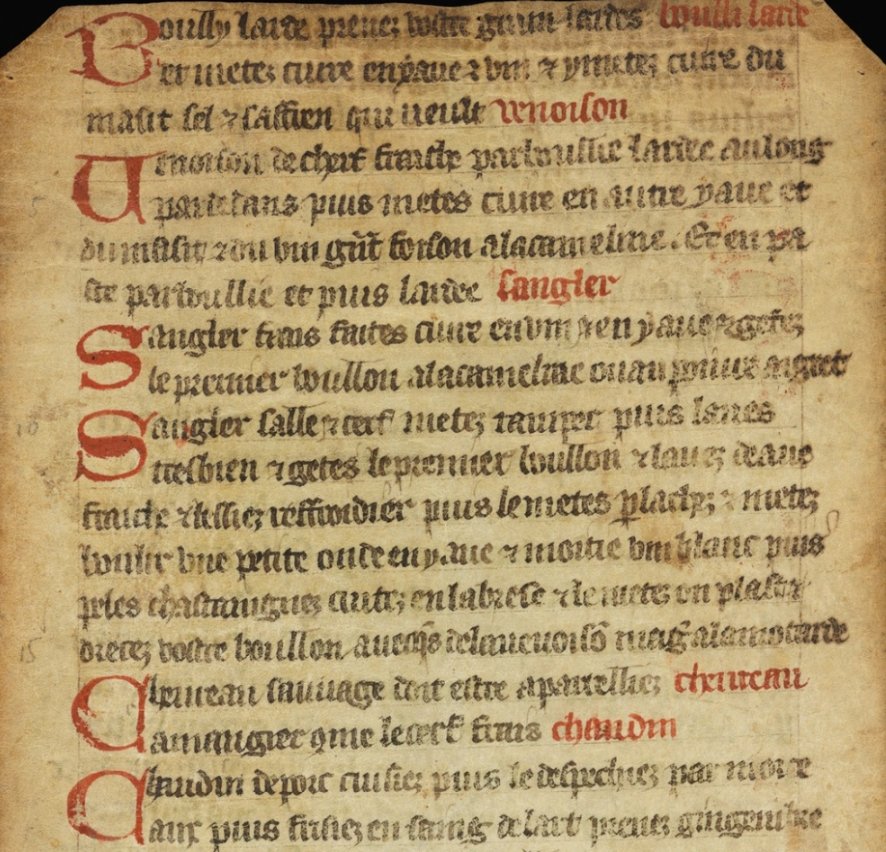 Boully larde prenez vostre grain lardes boulli larde
et metez cuire en yaue & vin & y metez cuire du
masit sel & saffren qui veult venoison
Venoison de cherf fraiche parboullie lardee au long
par dedans puis metes cuire en autre yaue et
du masit & du vin gñt foison a la cameline. Et en pa
ste parboullie et puis lardee sangler
Sangler frais faites cuire en vin & en yaue & getez
le premier boullon a la cameline ou au poivre aigret
Sangler salle & cerf metez puis laves
tresbien & getes le premier boullon & lavez deaue
fraiche & lessiez reffroidier puis le metes p lachez & metez
boulir une petite onde en yaue & moitie vin blanc puis
peles chastaingnes cuitez en la brese & le metez on plat
drecez vostre boullon avecqs de la venoisõ mág a la moutarde
Chevreau sauvage doit estre apareilliez chevreau
a maugier 9me le cerf frais chaudin
Chaudin de porc cuisiez puis le despechiez par morce
aux puis frisiez en saing de lart prenez gingembre